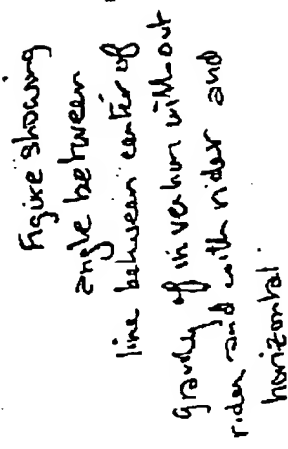 Figure showing
angle between
line between center of
gravity of invention without
rider and with rider and
horizontal.